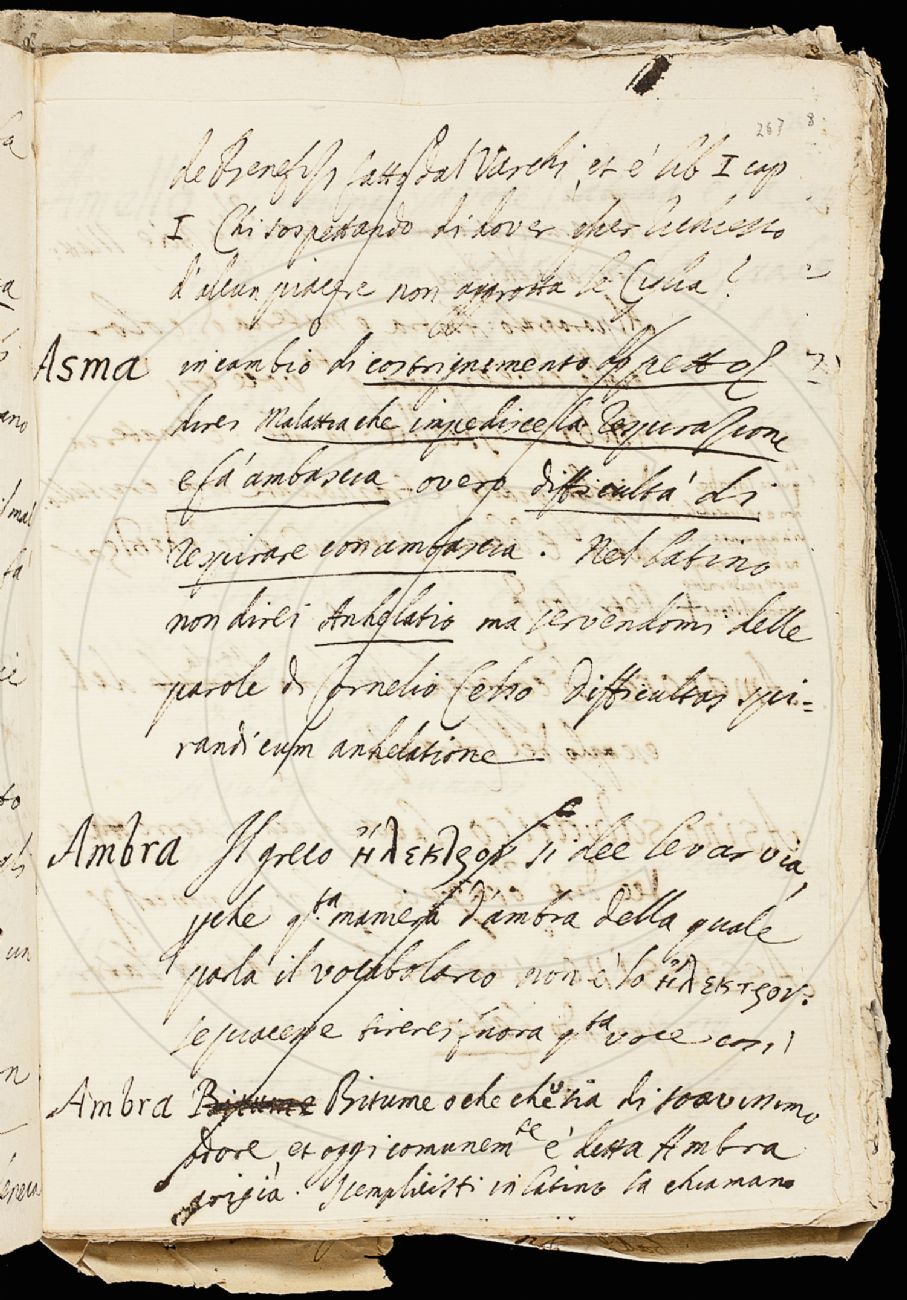 267 8
de Benefizj fatto dal Varchi, et è lib I cap
I Chi sospettando di dover esser richiesto
d'alcun piacere non aggrotta le Ciglia?
Asma in cambio di costrignimento di petto
direi Malattia che impedisce la respirazione
e fa' ambascia overo difficultà di
respirare con ambascia. Nel latino
non direi Anhelatio ma servendomi delle
parole di Cornelio Celso Difficultas spi=
randi cum anhelatione
Ambra Il greco ἤλεκτρον si dee levar via,
pche qsta maniera d'ambra della quale
parla il vocabolario non è lo ἤλεκτρον.
se piacesse tirerei fuora qsta voce così
Ambra Bitume Bitume o che che si sia di soavissimo
odore et oggi comunemte è detta Ambra
grigia. I semplicisti in latino la chiamano